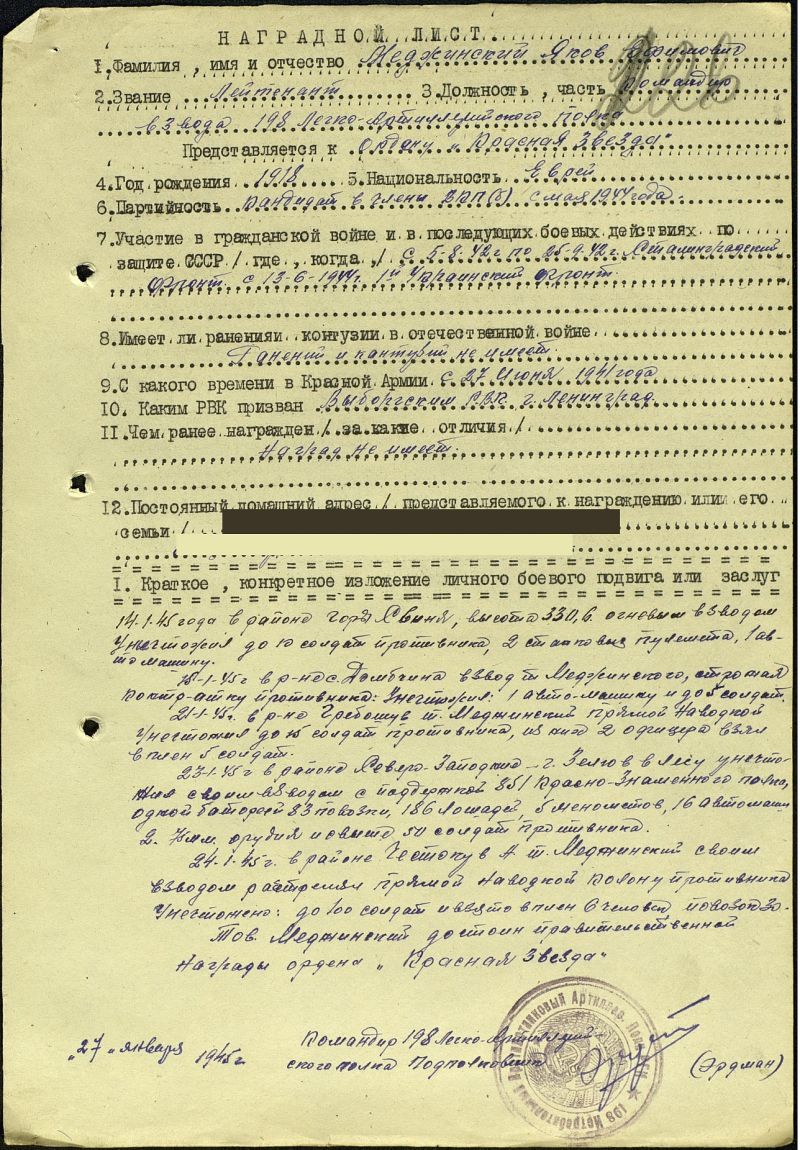 НАГРАДНОЙ ЛИСТ
1.Фамилия, имя и отчество Меджинский Яков Ефимович
2.Звание Лейтенант 3.Должность, часть Командир
взвода 198 Легко-Артиллерийского полка
Представляется к Ордену "Красная Звезда"
4.Год рождения 1918 5.Национальность Еврей
6.Партийность Кандидат в члены ВКП(б) с мая 1944 года.
7.Участие в гражданской войне и в последующих боевых действиях по
защите СССР / где, когда / с 5-8.42г по 25-9.42г. Сталинградский
Фронт. с 13-6-1944г. 1й Украинский Фронт.
8.Имеет ли ранения и контузии в отечественной войне
Ранений и контузий не имеет.
9.С какого времени в Красной Армии с 27 Июня 1941 года
10. Каким РВК призван Выборгским РВК г. Ленинград
11.Чем ранее награжден / за какие отличия /
Наград не имеет.
12.Постоянный домашний адрес / представляемого к награждению или его
семьи /
1. Краткое, конкретное изложение личного боевого подвига или заслуг
14.1.45 года в районе горы Свиня, высота 330,6. огневым взводом
Унечтожил до 10 солдат противника, 2 станковых пулемета, 1 ав-
томашину.
15-1-45г в р-не с. Домбчина взвод т Меджинского, отражая
контр-атку противника: Унечтожил. 1 авто-машину и до 5 солдат.
21-1-45г. в р-но Гребошув т. Меджинский прямой Наводкой
Унечтожил до 10 солдат противника, из них 2 офицера взял
в плен 5 солдат.
23-1-45г в районе Северо-Западней г. Зелюв в лесу унечто-
жил своим взводом с поддержкой 851 Красно-Знаменного полка,
одной батареей 83 повозки, 186 Лошадей, 5 минометов, 16 автомашин
2. 75мм. орудия и свыше 50 солдат противника.
24-1-45г. в районе Честокув А т. Меджинский своим
взводом растрелял прямой Наводкой Колону противника
Унечтожено: до 100 солдат и взято в плен 6 человек повозок 30.
Тов. Меджинский достоин правительственной
Награды ордена "Красная Звезда"
"27" января 1945г.
Командир 198 Легко-Артиллерий-
ского полка Подполковник (Эрдман)
198 Истребительный Артиллер. Полк